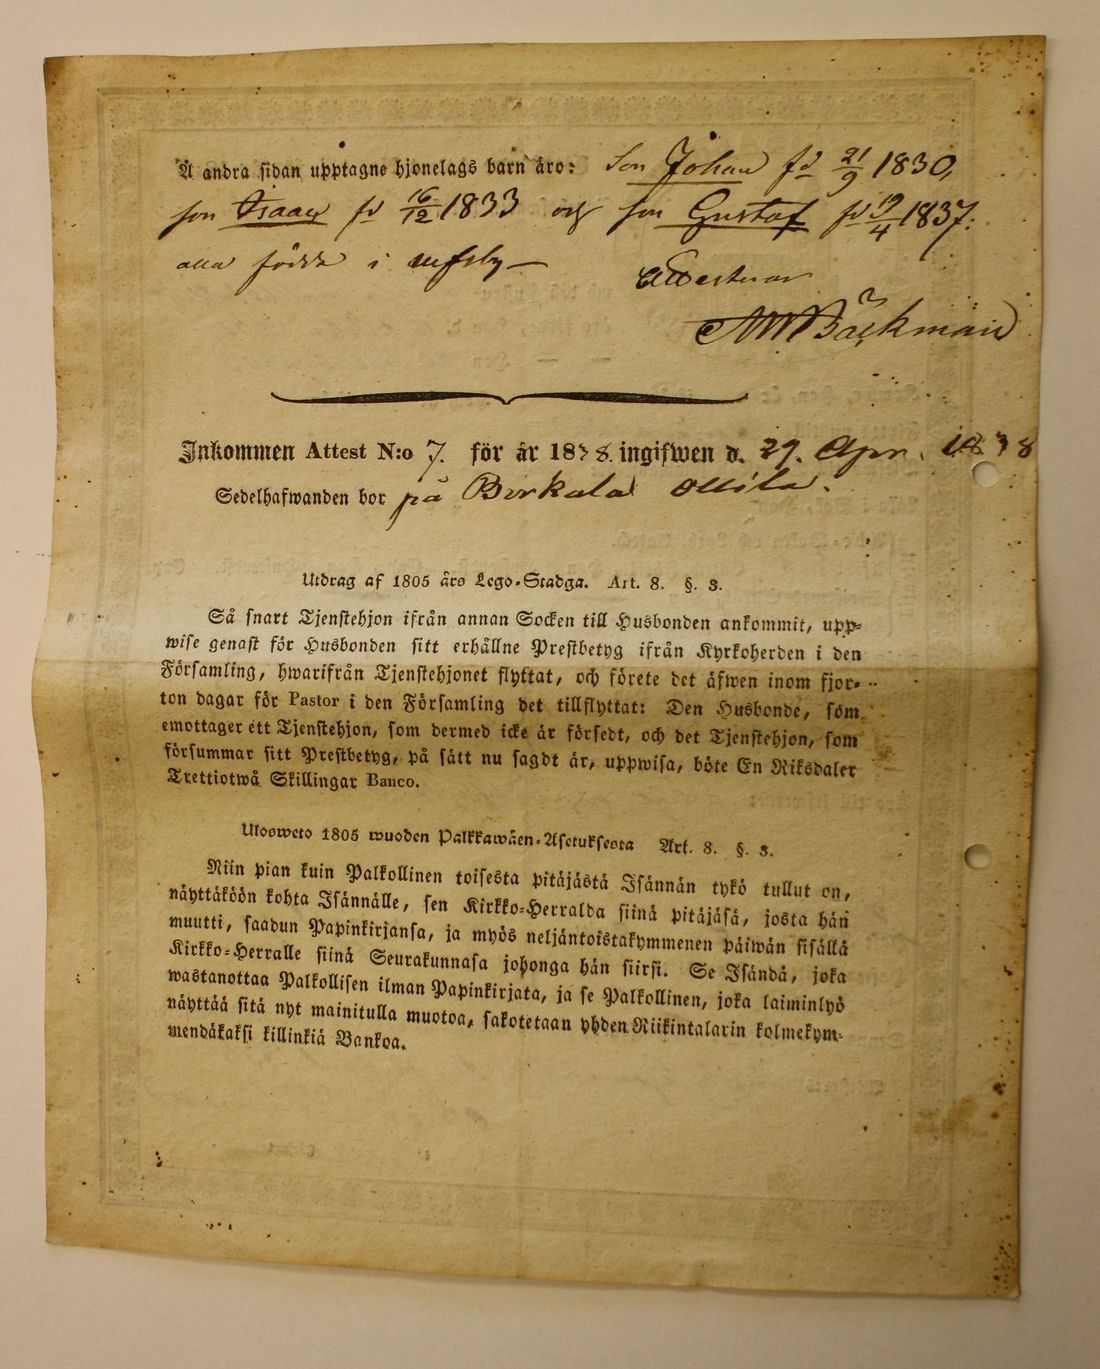 Å andra sidan upptagne hjonelags barn äro: Son Johan fd 21/9 1830,
son Isaac fd 16/12 1833 och son Gustaf fd 19/4 1837.
alla födde i Ulfsby—
Attesterar
Bäckman
Inkommen Attest N:o 7. för år 1838. ingifwen d. 29. Apr. 1838
Sedelhafwanden bor på Birkala Ollila.
Utdrag af 1805 års Lego-Stadga. Art. 8. §. 3.
Så snart Tjenstehjon ifrån annan Socken till Husbonden ankommit, upp=
wise genast för Husbonden sitt erhållne Prestbetyg ifrån Kyrkoherden i den
Församling, hwarifrån Tjenstehjonet flyttat, och förete det äfwen inom fjor-
ton dagar för Pastor i den Församling det tillflyttat: Den Husbonde, som
emottager ett Tjenstehjon, som dermed icke är försedt, och det Tjenstehjon, som
försummar sitt Prestbetyg, på sätt nu sagdt är, uppwisa, böte En Riksdaler
Trettiotwå Skillingar Banco.
Ulosweto 1805 wuoden Palkkawäen-Asetuksesta Art. 8. §. 3.
Niin pian kuin Palkollinen toisesta pitäjästä Isännän tykö tullut on,
näyttäköön kohta Isännälle, sen Kirkko=Herralda siinä pitäjäsä, josta hän
muutti, saadun Papinkirjansa, ja myös neljäntoistakymmenen päiwän sisällä
Kirkko=Herralle siinä Seurakunnasa johonga hän siirsi. Se Isändä, joka
wastanottaa Palkollisen ilman Papinkirjata, ja se Palkollinen, joka laiminlyö
näyttää sitä nyt mainitulla muotoa, sakotetaan yhden Riikintalarin kolmekym=
mendäkaksi killinkiä Bankoa.